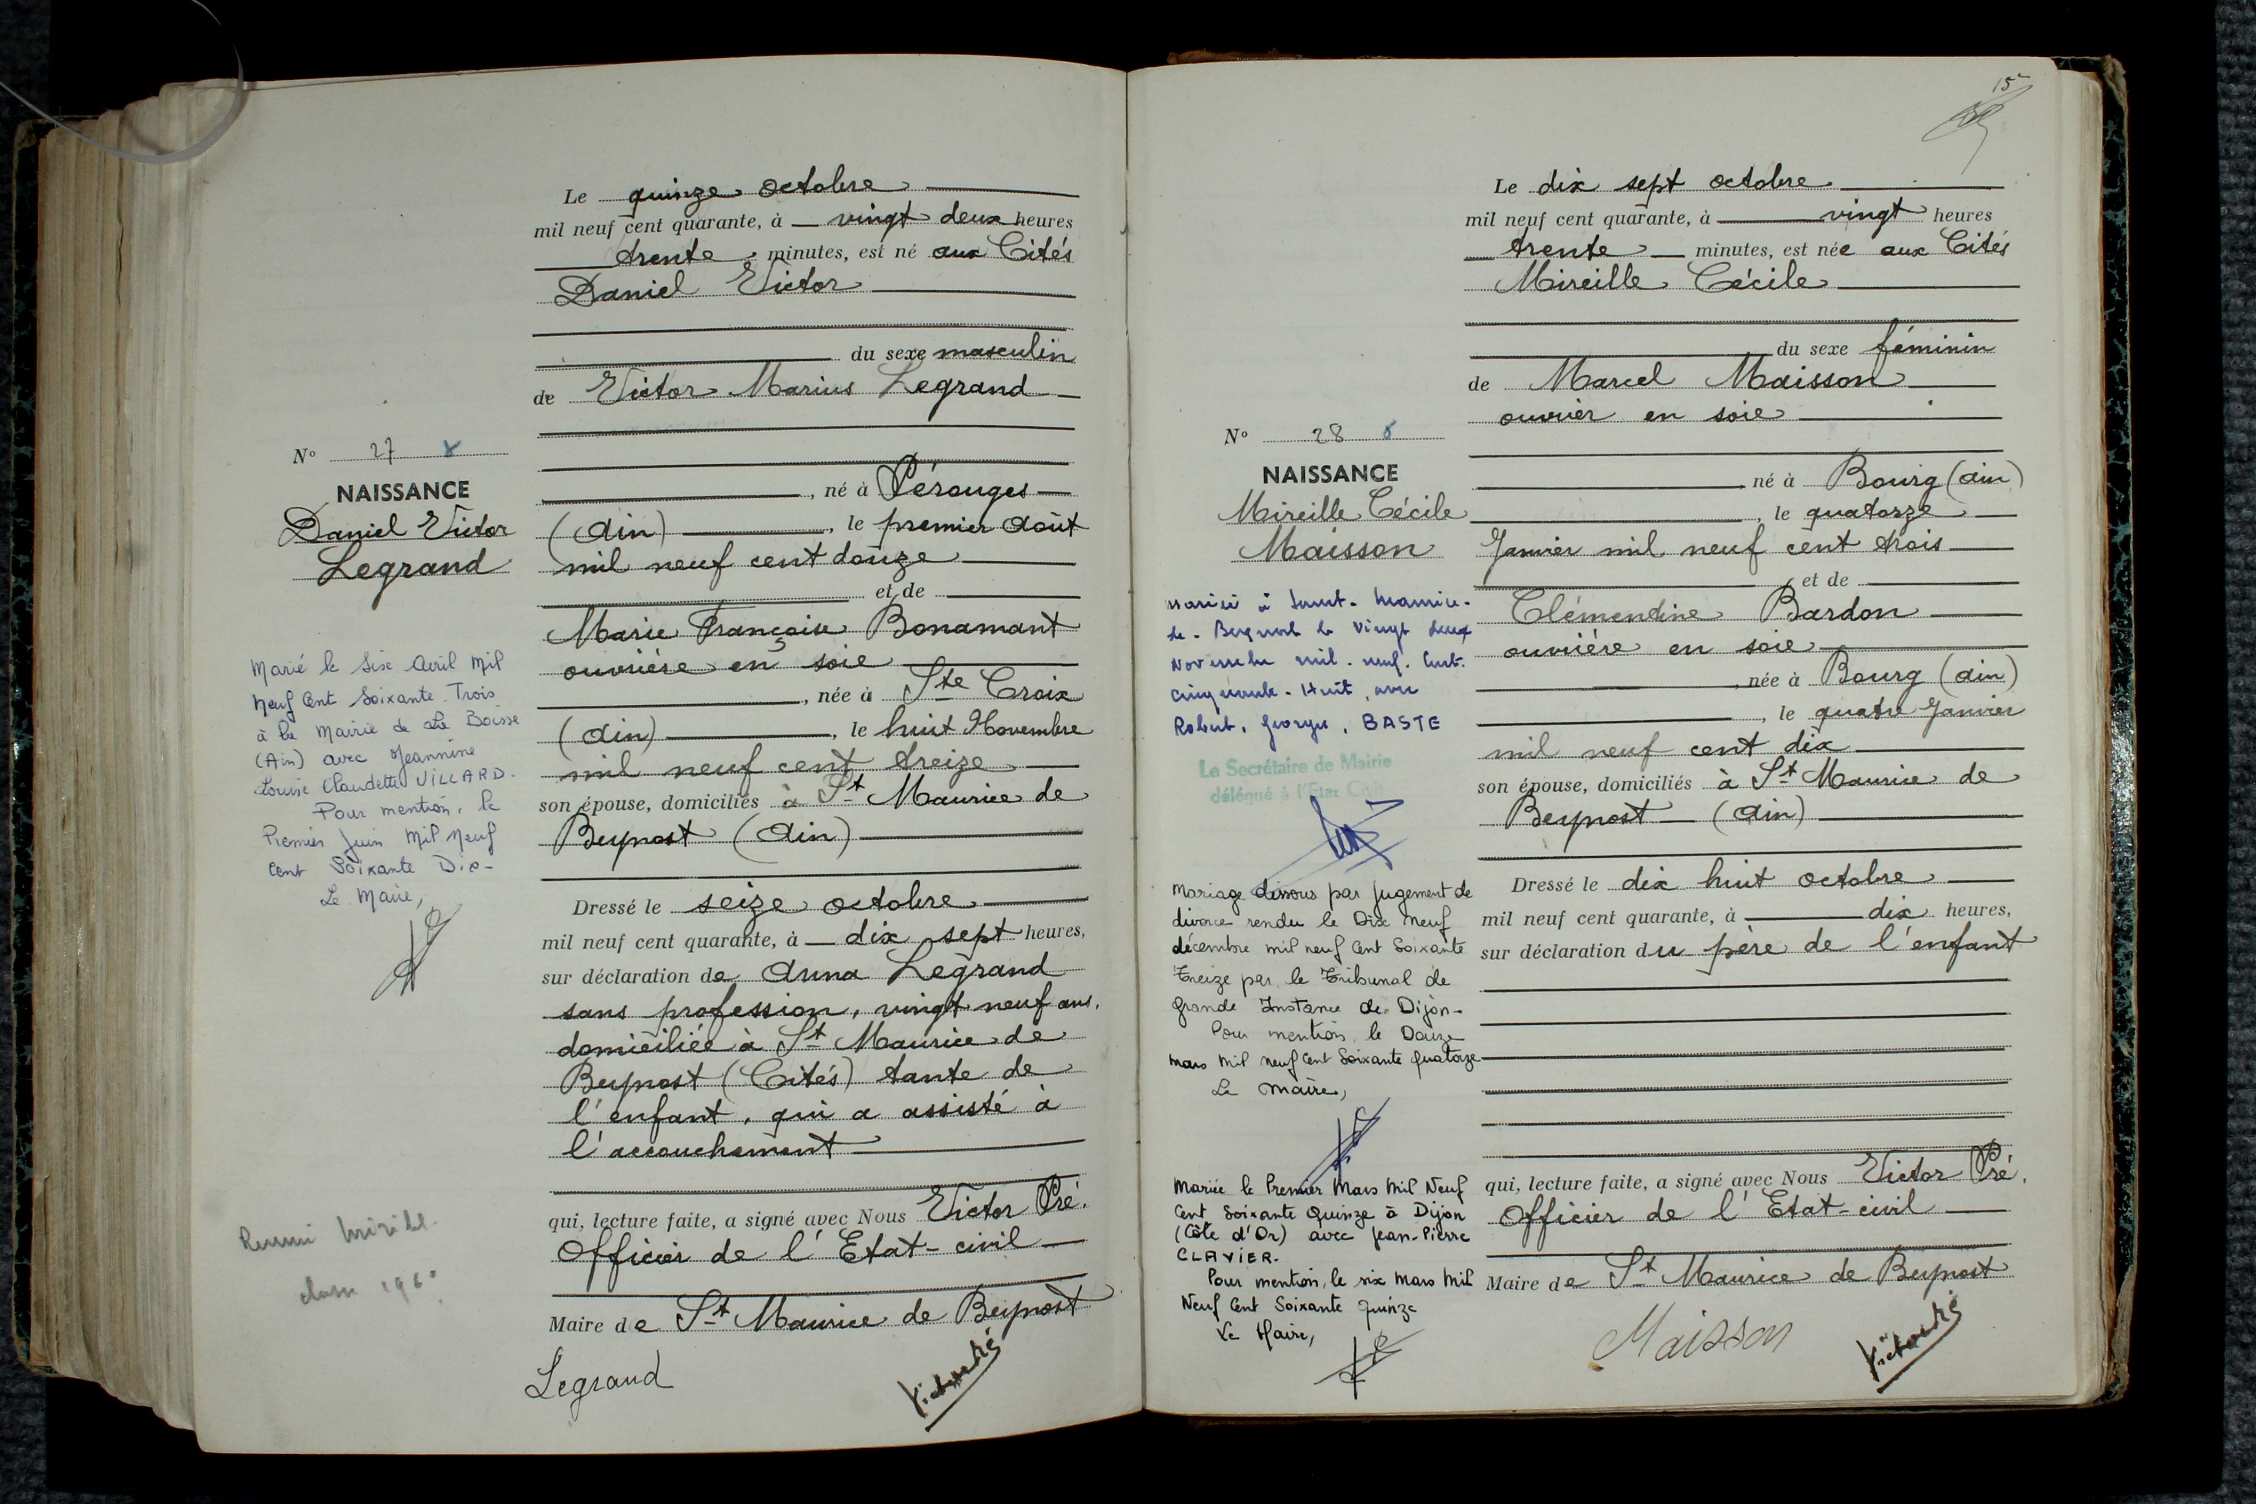 Le quinze octobre
mil neuf cent quarante, à vingt deux heures
trente minutes, est né aux Cités
Daniel Victor
du sexe masculin
de Victor Marius Legrand
N° 27
NAISSANCE
Daniel Victor
Legrand
, né à Pérouges
(Ain) , le premier Août
mil neuf cent douze
et de
Marie Françoise Bonamant
ouvrière en soie
, née à Ste Croix
(Ain) , le huit Novembre
mil neuf cent treize
son épouse, domiciliés à St Maurice de
Beynost (Ain)
Marié le Six Avril Mil
Neuf Cent Soixante Trois
à la Mairie de La Boisse
(Ain) avec Jeannine
Louise Claudette VILLARD.
Pour mention, le
Premier Juin Mil Neuf
Cent Soixante Dix-
Le Maire,
Dressé le seize octobre
mil neuf cent quarante, à dix sept heures,
sur déclaration de Anna Legrand
sans profession, vingt neuf ans,
domiciliée à St Maurice de
Beynost (Cités) tante de
l'enfant, qui a assisté à
l'accouchement
qui, lecture faite, a signé avec Nous Victor Pré.
Officier de l'Etat-civil
Maire de St Maurice de Beynost
classe 1960
Legrand
Victor Pré
15
Le dix sept octobre
mil neuf cent quarante, à vingt heures
trente minutes, est née aux Cités
Mireille Cécile
du sexe féminin
de Marcel Maisson
ouvrier en soie
N° 28
NAISSANCE
Mireille Cécile
Maisson
né à Bourg (Ain)
, le quatorze
Janvier mil neuf cent trois
et de
Clémentine Bardon
ouvrière en soie
, née à Bourg (Ain)
, le quatre Janvier
mil neuf cent dix
son épouse, domiciliés à St Maurice de
Beynost (Ain)
Mariée à Saint-Maurice-
de-Beynost le vingt deux
Novembre mil-neuf-Cent-
cinquante-Huit, avec
Robert, Georges, BASTE
Le Secrétaire de Mairie
délégué à l'Etat Civil
Mariage dissous par jugement de
divorce rendu le Dix Neuf
décembre mil neuf Cent Soixante
Treize par le Tribunal de
Grande Instance de Dijon-
Pour mention, le Douze
Mars Mil Neuf Cent Soixante Quatorze
Le Maire,
Mariée le Premier Mars Mil Neuf
Cent Soixante Quinze à Dijon
(Côte d'Or) avec Jean-Pierre
CLAVIER.
Pour mention, le six Mars Mil
Neuf Cent Soixante Quinze
Le Maire,
Dressé le dix huit octobre
mil neuf cent quarante, à dix heures,
sur déclaration du père de l'enfant
qui, lecture faite, a signé avec Nous Victor Pré.
Officier de l'Etat-civil
Maire de St Maurice de Beynost
Maisson
Victor Pré